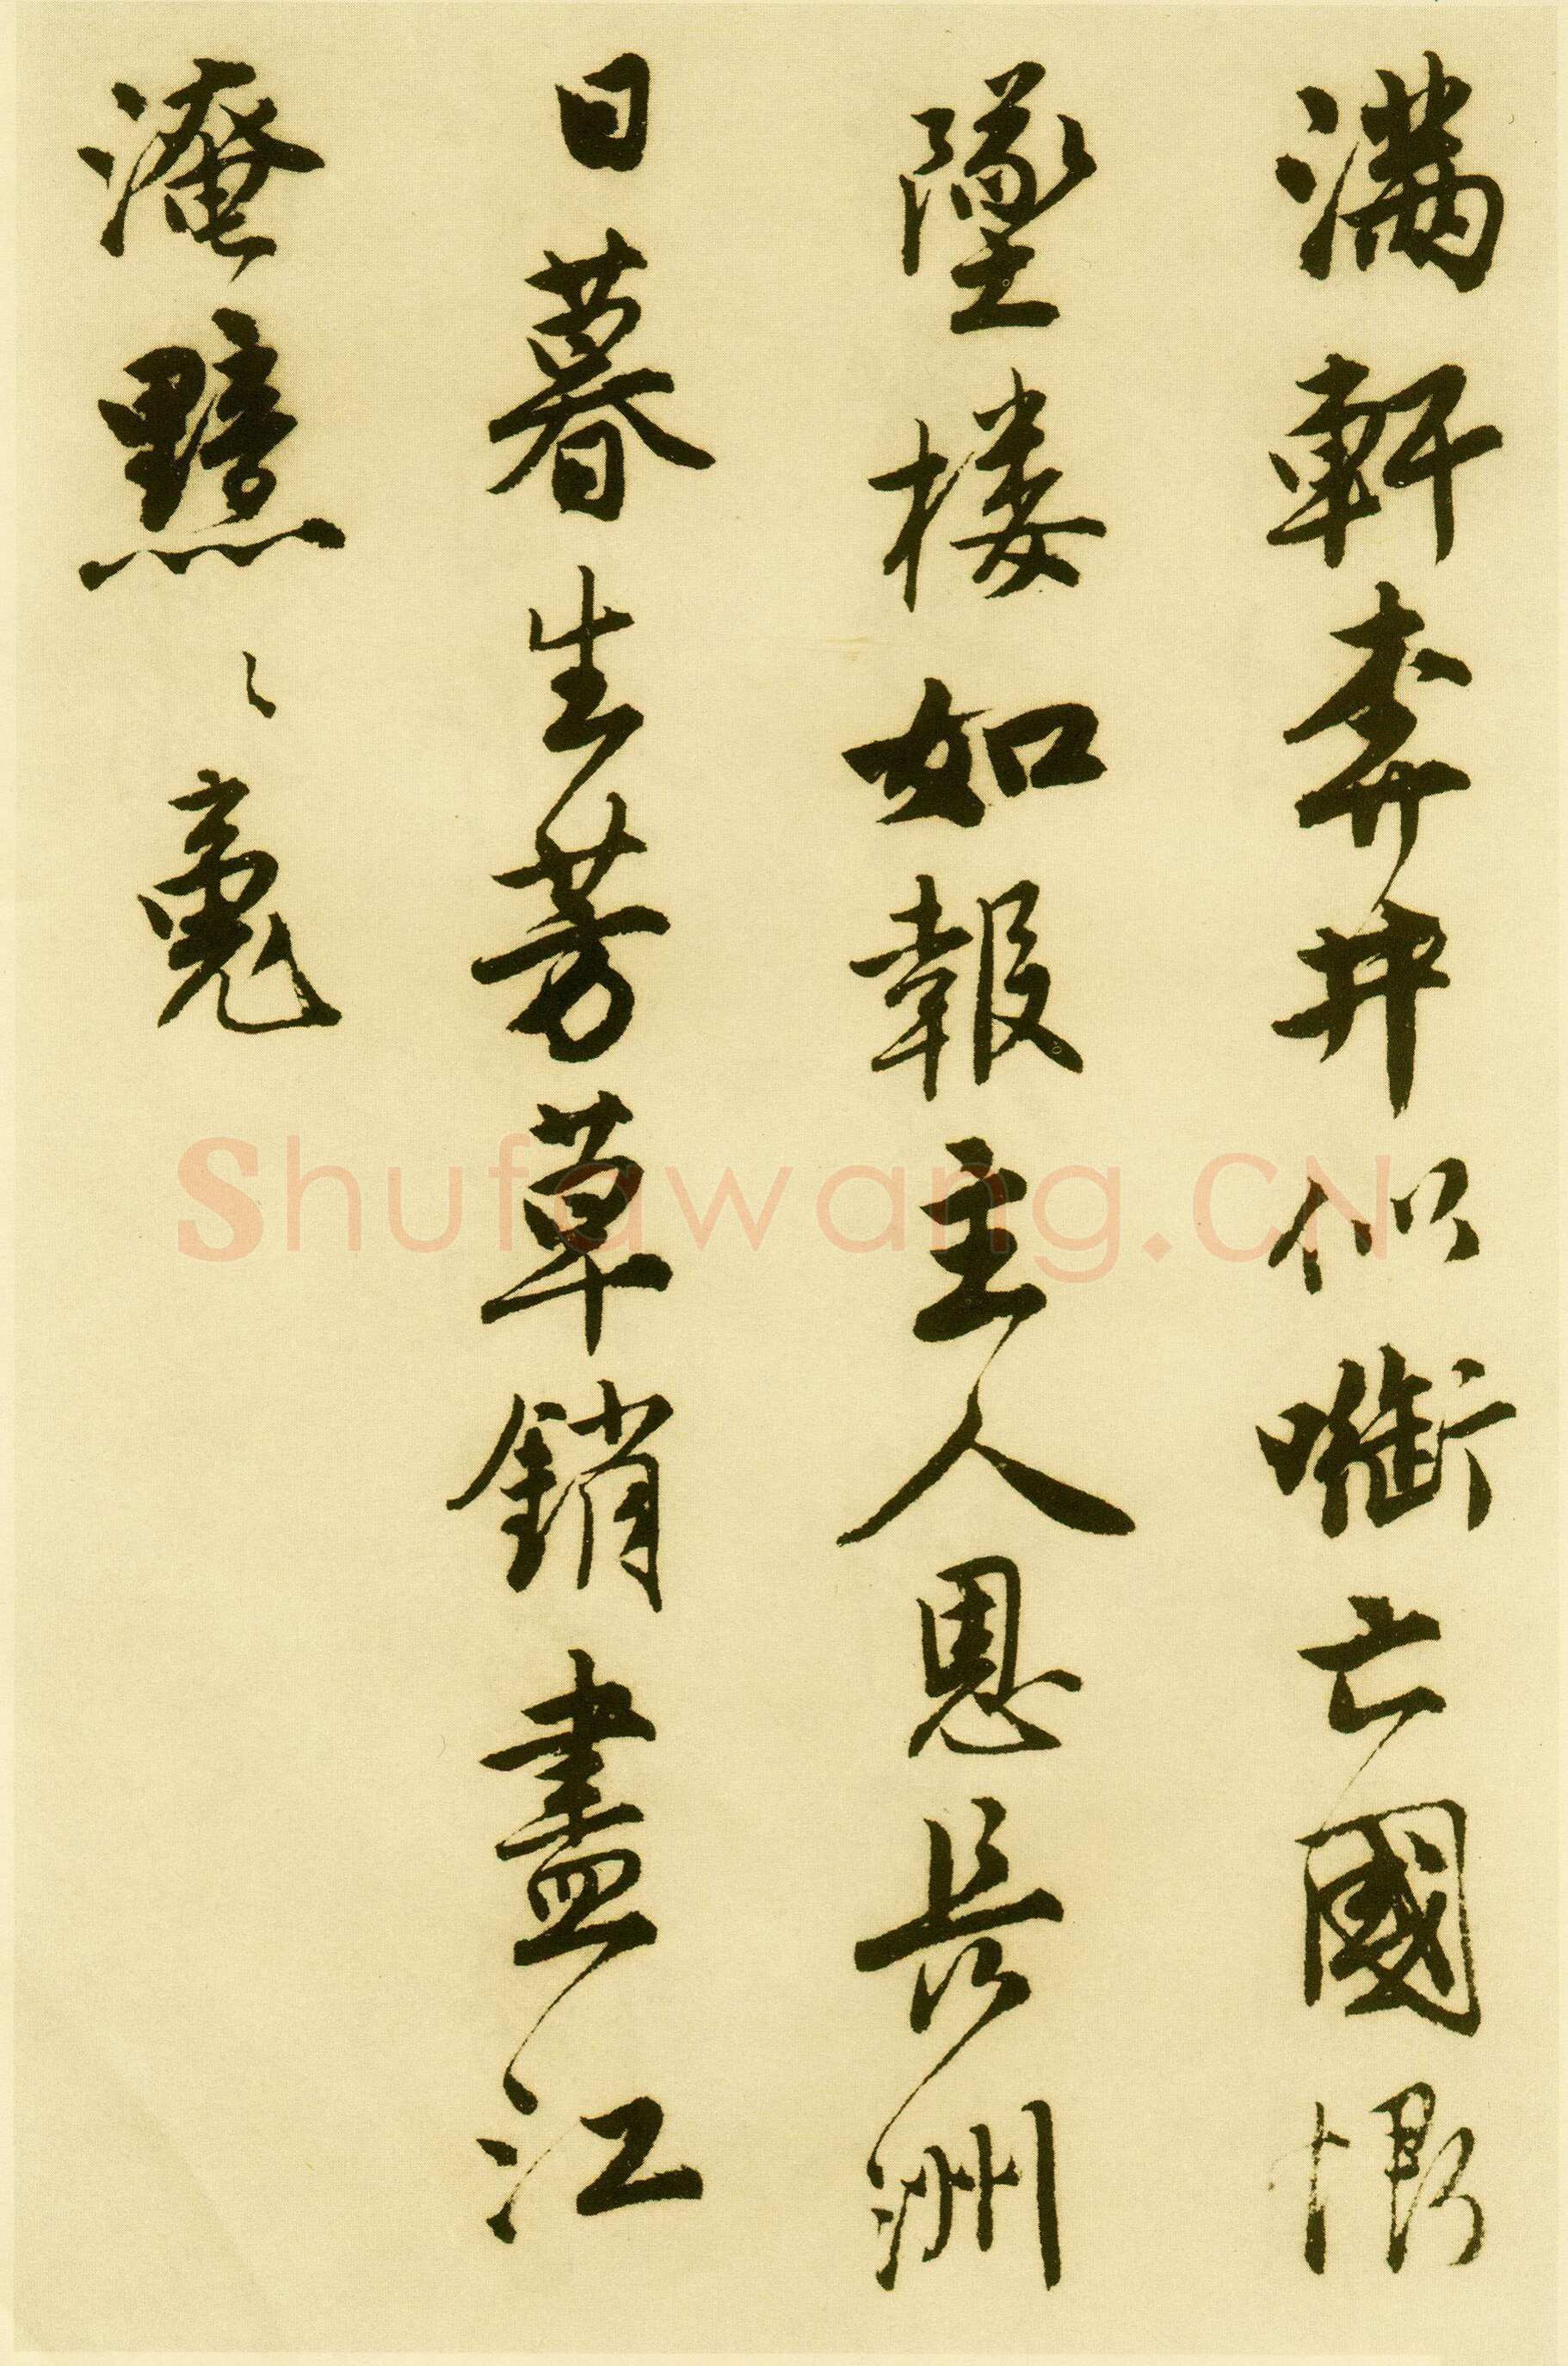 滿軒奔井似㘅亡國恨
墜楼如報主人恩長洲
日暮生芳草銷盡江
淹黯々魂
Shufawang.CN